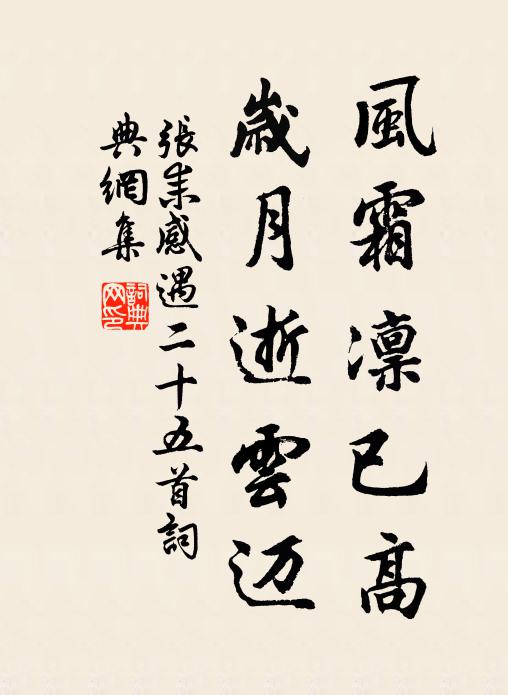 風霜凛已高
歳月逝雲迈
張耒感遇二十五首詞
典網集
詞典
网印